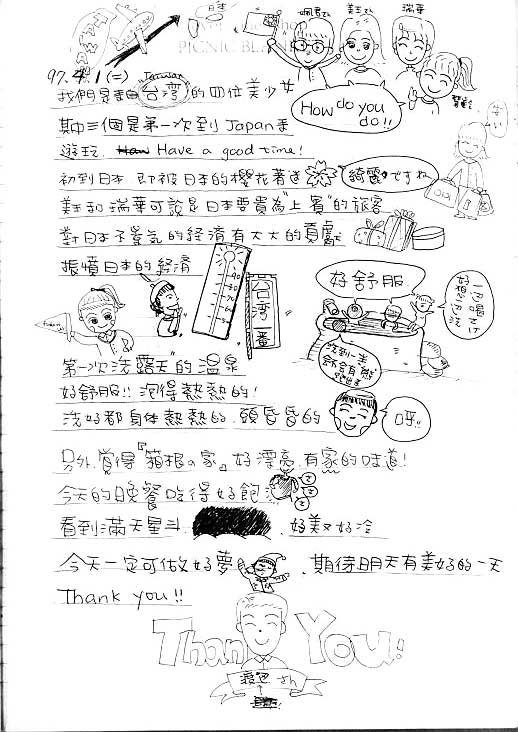 日本
PICNIC BLAN
佩君さん
美玉さん
瑞華
97.4.1(二)
Taiwan
我們是來自台灣的四位美少女
How do you do!!
其中三個是第一次到Japan來
遊玩. Have a good time!
初到日本 即被日本的櫻花著迷
綺麗ですね
美玉和瑞華可說是日本要貴為"上賓"的旅客
對日本不景氣的経済有大大的貢獻
振憤日本的経済
台灣一番
好舒服
第一次洗"露天"的溫泉
好舒服!! 泡得熱熱的!
洗好都身体熱熱的.頭昏昏的
呼!!
另外覺得『箱根の家』好漂亮.有家的味道!
今天的晚餐吃得好飽
看到滿天星斗
.好美又好冷
今天一定可做好夢
.期待明天有美好的一天
Thank you!!
Thank You!
渡边 さん